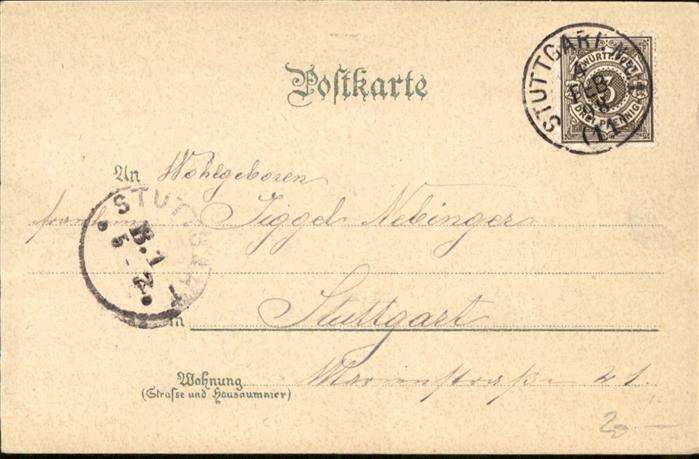 Postkarte
STUTTGART
4
FEB
98
(11
WÜRTTEMBG.
3
DREI PFENNIG
An Wohlgeboren
Nebinger
STUTTGART
B. 1
5 - 2
in Stuttgart
Wohnung Marienstraße 21
(Strasse und Hausnummer)
20 —